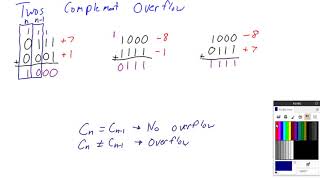 Twos Complement Overflow
n n-1
1 1 1
0 1 1 1 +7
+ 0 0 0 1 +1
1 0 0 0
1
1000 -8
+ 1111 -1
0111
1000 -8
+ 0111 +7
1111
Cn = Cn-1 → No overflow
Cn ≠ Cn-1 → Overflow